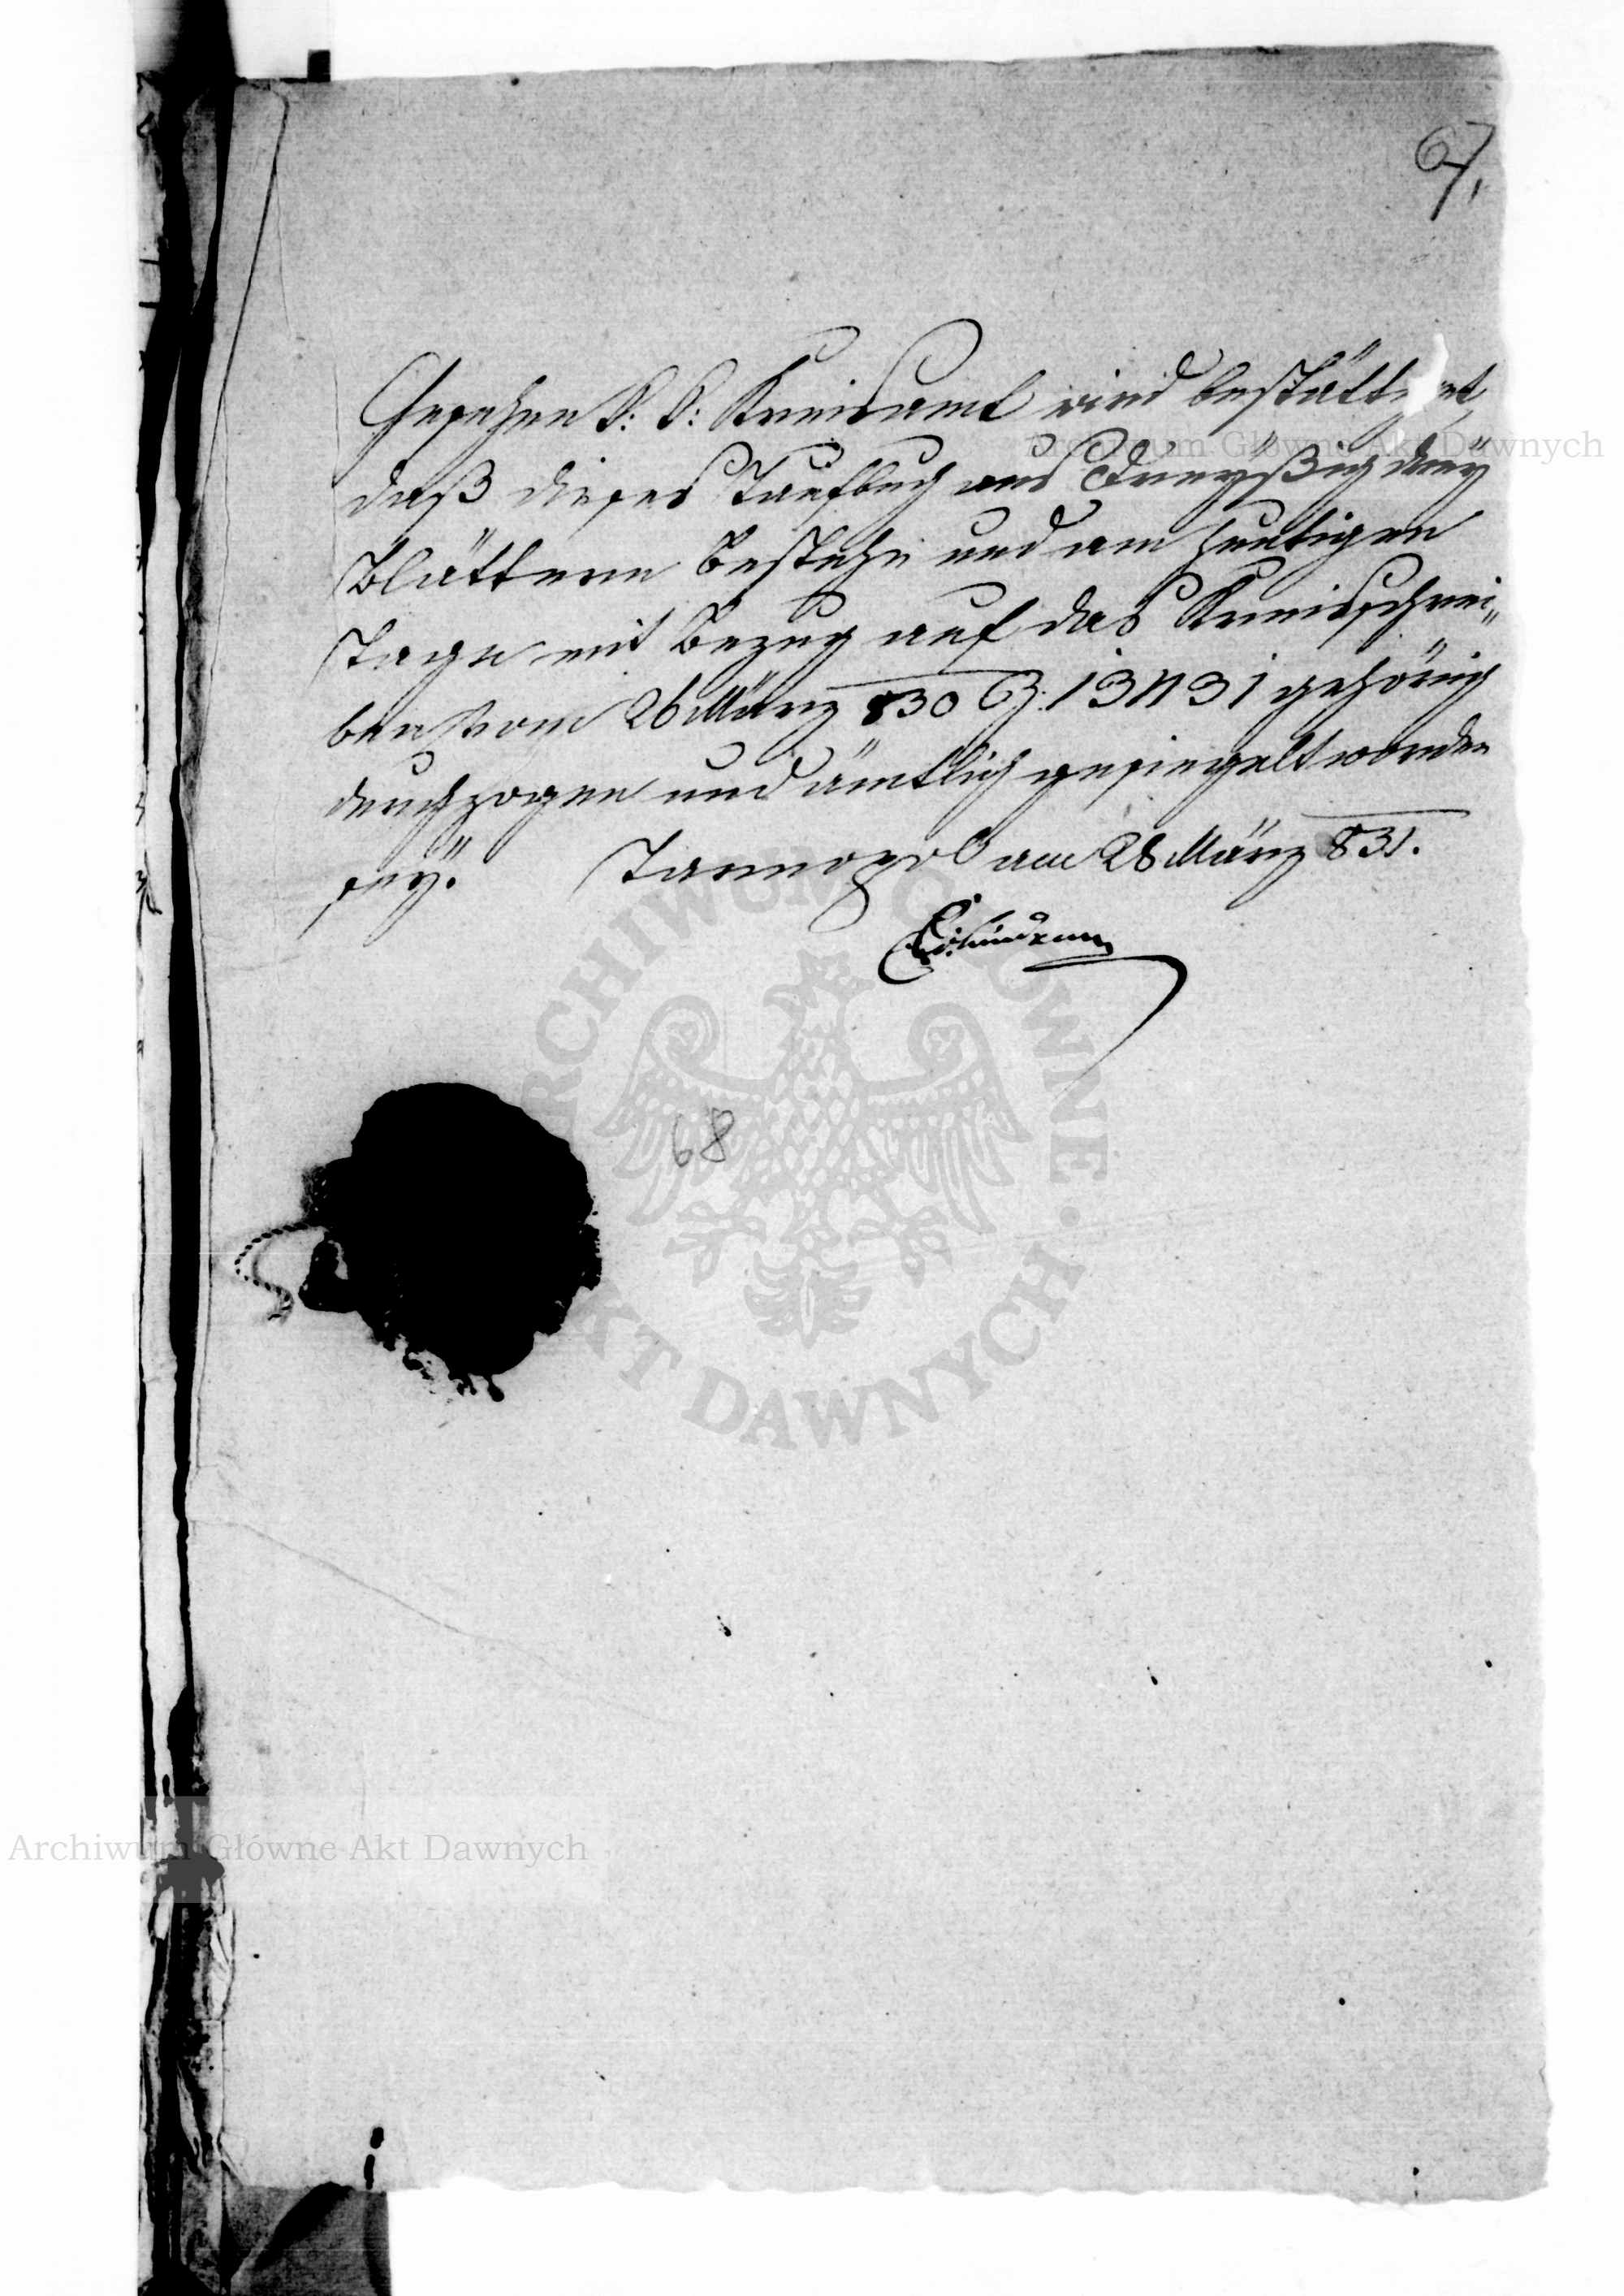 67,
Gesehen K: K: Kreisamt wird bestättiget
daß dieses Taufbuch aus Dreyßig drey
Blättern bestehe und am heutigen
Tage mit Bezug auf das Kreisschrei„
ben vom 26 März 830 Z: 13431 gehörig
durchzogen und ämtlich gesiegelt worden
seÿ. Tarnopol am 28 März 831.
68
Archiwum Główne Akt Dawnych
ARCHIWUM GŁÓWNE · AKT DAWNYCH ·
Archiwum Główne Akt Dawnych